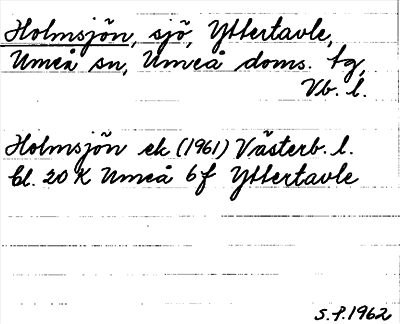 Holmsjön, sjö, Yttertavle,
Umeå sn, Umeå doms. tg,
Vb. l.
Holmsjön ek (1961) Västerb. l.
bl. 20 K Umeå 6f Yttertavle
S.P. 1962